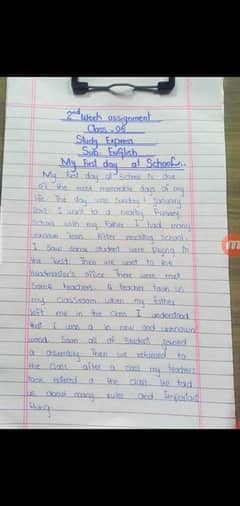 2nd Week assignment
Class - 05
Study Express
Sub: English
My First day at School..
My first day at School is one
of the most memorable days of my
life. The day was Sunday 1 January
I went to a nearby Primary
School with my father. I had many
After reaching School,
I Saw Some Student were Playing in
the Then we went to the
headmaster's office There were met
Some teachers. A teacher in
my classroom when my father
left me in the class I understand
that I was a in new and unknown
Soon all of Student joined
a assembly. Then we returned to
the class after a my teachers
entered a the class. He told
us about many rules and Important
thing.